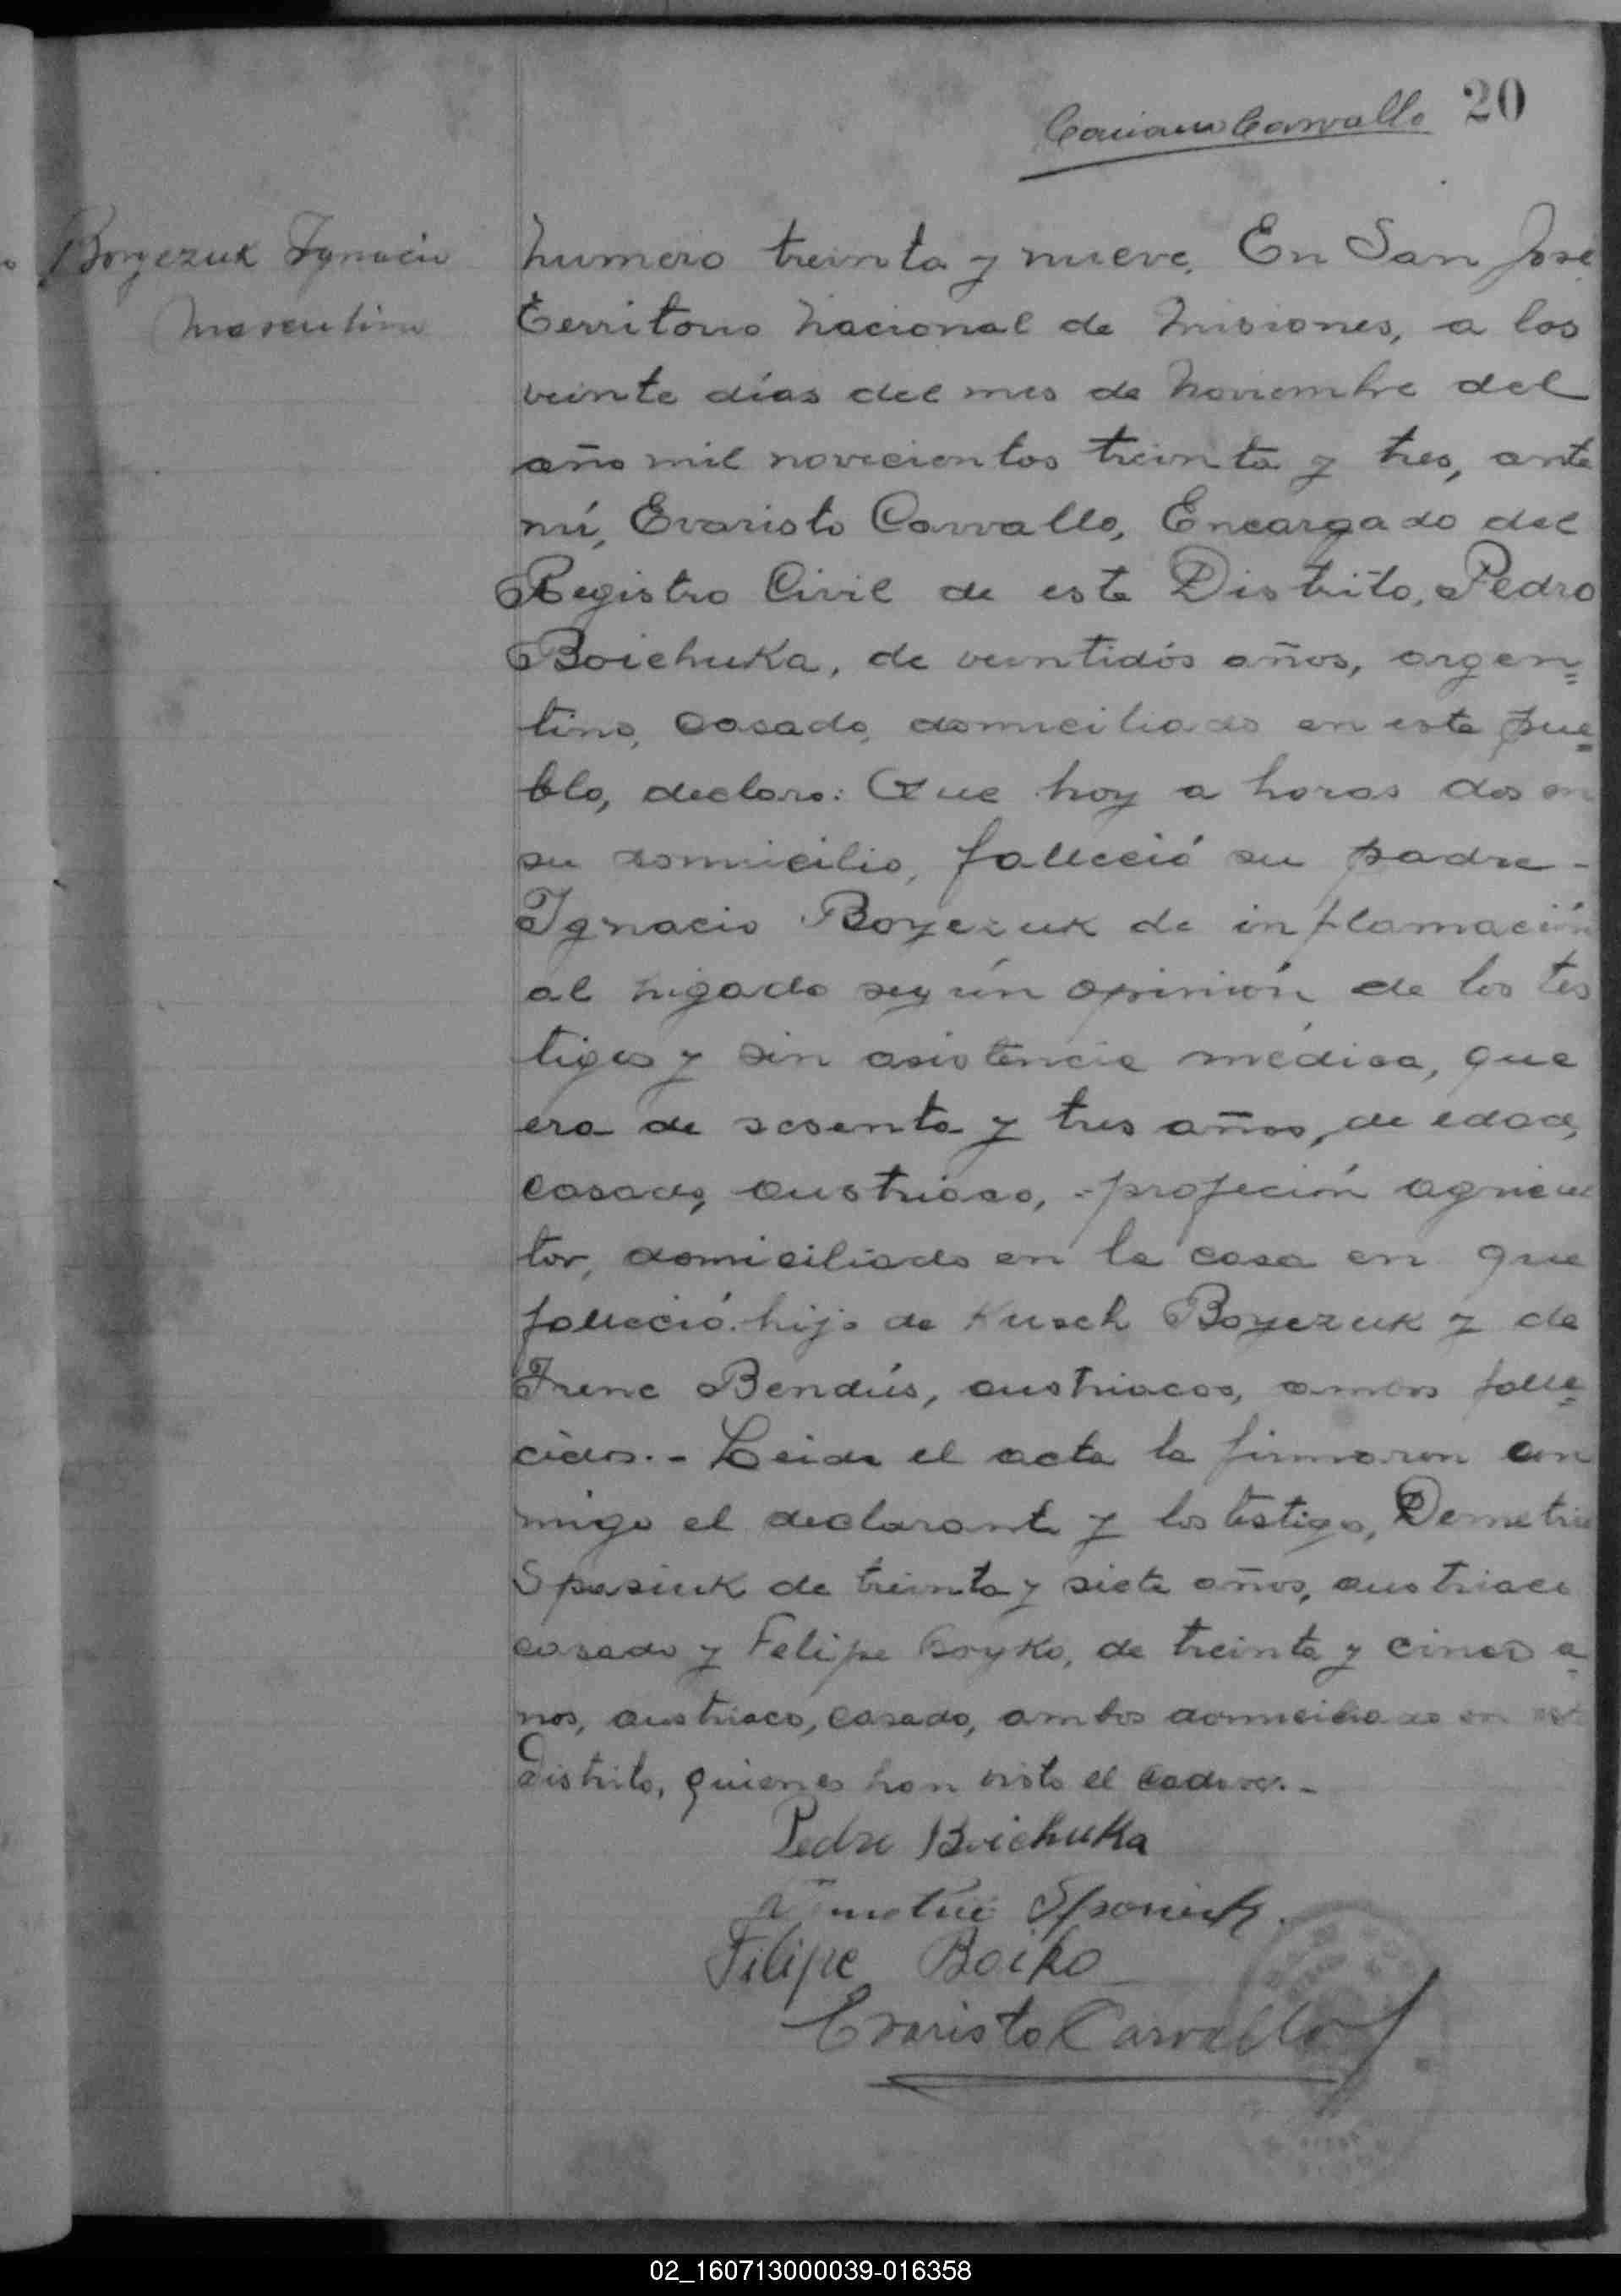 20
Boyezuk Ignacio
Masculino
Numero treinta y nueve. En San José
Territorio Nacional de Misiones, a los
veinte días del mes de Noviembre del
año mil novecientos treinta y tres, ante
mí, Evaristo Carvallo, Encargado del
Registro Civil de este Distrito, Pedro
Boichuka, de veintidós años, argen=
tino, casado, domiciliado en este pue=
blo, declaro: Que hoy a horas dos en
su domicilio, falleció su padre -
Ignacio Boyezuk de inflamación
al higado según opinión de los tes
tigos y sin asistencia médica, que
era de sesenta y tres años, de edad,
casado, austriaco, - profeción agricul
tor, domiciliado en la casa en que
falleció. hijo de Kusch Boyezuk y de
Irene Bendús, austriacos, ambos falle=
cidos. - Leida el acta la firmaron con
migo el declarante y los testigos, Demetrio
Spasiuk de treinta y siete años, austriaco
casado y Felipe Boyko, de treinta y cinco a
ños, austriaco, casado, ambos domiciliado en este
Distrito, quienes han visto el cadaver. -
Pedro Boichuka
Spasiuk.
Filipe Boiko
Evaristo Carvallo
02_160713000039-016358